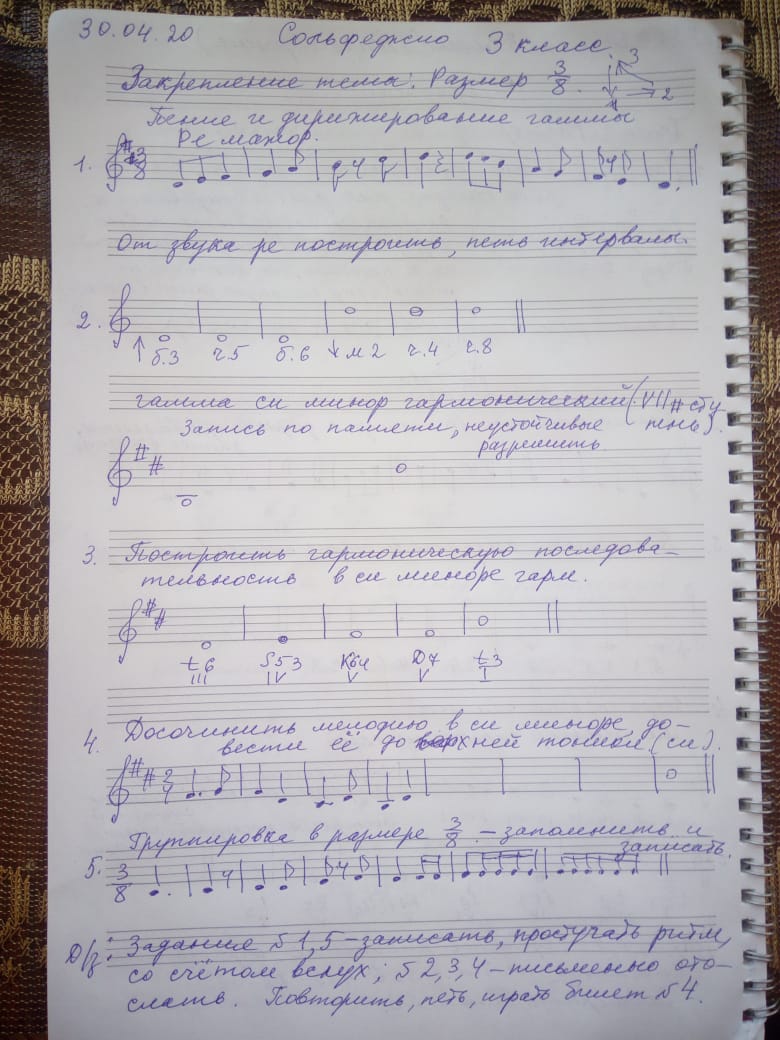 30.04.20 Сольфеджио 3 класс.
Закрепление темы: Размер 3/8. 3
1 → 2
Пение и дирижирование гаммы
Ре мажор.
1. 3/8
От звука ре построить, петь интервалы.
2.
↑ б.3 ч.5 б.6 ↓ м2 ч.4 ч.8
гамма си минор гармонический (VII# сту-
Запись по памяти, неустойчивые пень).
разрешить
3. Построить гармоническую последова-
тельность в си миноре гарм.
t6 S53 K64 D7 t3
III IV V V I
4. Досочинить мелодию в си миноре до-
вести её до верхней тоники (си).
2/4
Группировка в размере 3/8 - запомнить и
записать.
5. 3/8
Д/з: Задания №1,5 - записать, простучать ритм,
со счётом вслух; №2,3,4 - письменно ото-
слать. Повторить, петь, играть билет №4.